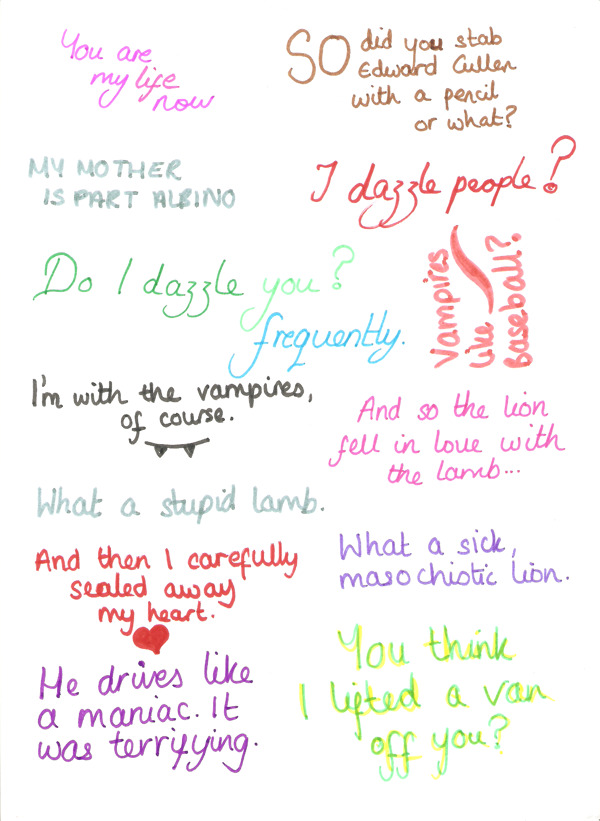 You are
my life
now
SO did you stab
Edward Cullen
with a pencil
or what?
MY MOTHER
IS PART ALBINO
I dazzle people?
Do I dazzle you?
frequently.
Vampires
like
Baseball?
I'm with the vampires,
of course.
And so the lion
fell in love with
the lamb...
What a stupid lamb.
What a sick,
masochistic lion.
And then I carefully
sealed away
my heart.
He drives like
a maniac. It
was terrifying.
You think
I lifted a van
off you?